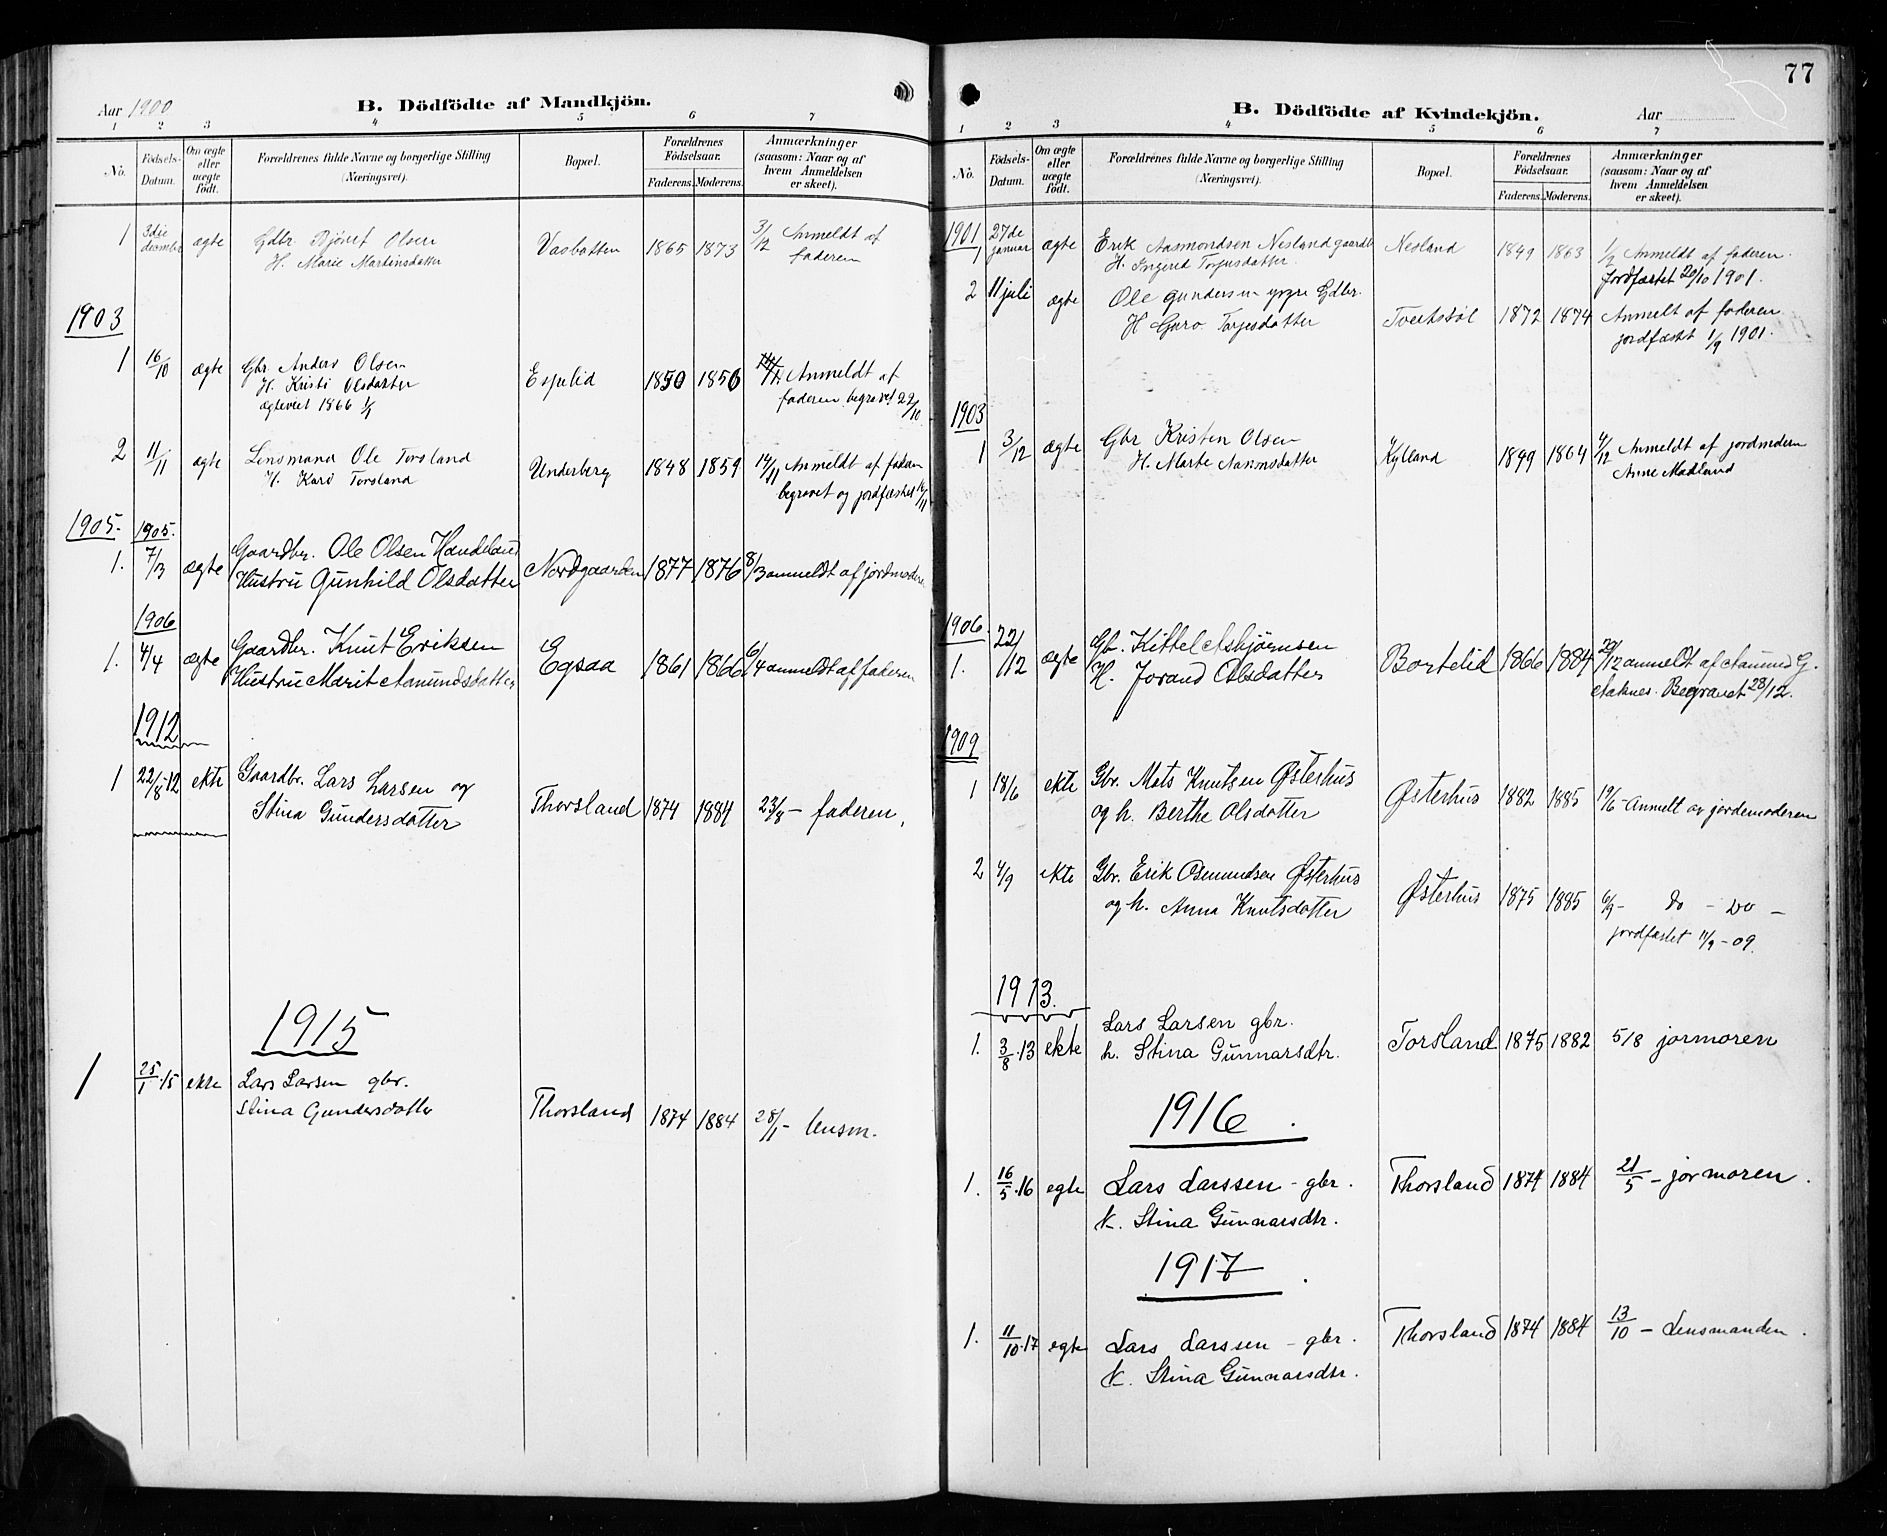 Aar 1900
B. Dödfödte af Mandkjön.
1 2 3 4 5 6 7
No.
Födsels-Datum.
Om ægte eller uægte födt.
Forældrenes fulde Navne og borgerlige Stilling (Næringsvei).
Bopæl.
Forældrenes Födselsaar.
Faderens. Moderens.
Anmærkninger (saasom: Naar og af hvem Anmeldelsen er skeet).
1 3die december ægte Gdbr. Bjövet Olsen Vasbotten 1865 1873 3/12 Anmeldt af
H. Marie Martinsdatter faderen
1903
1 16/10 ægte Gbr. Anders Olsen Espelid 1850 1850 Anmeldt af
H. Kristi Olsdatter faderen begravet 22/10
ægteviet 1866
2 11/11 ægte Lensmand Ole Torsland Underberg 1848 1859 14/11 Anmeldt af faderen
H. Karo Torsland begravet og jordfæstet
1905. 1905.
1. 7/3 ægte Gaardbr. Ole Olsen Handeland Nordgaarden 1877 1876 8/3 anmeldt af jordmoderen
Hustru Gunhild Olsdatter
1906
1. 4/4 ægte Gaardbr. Knut Eriksen Egsaa 1861 1866 6/4 anmeldt af faderen
Hustru Marit Aamundsdatter
1912
1 22/8-12 ekte Gaardbr. Lars Larsen og Thorsland 1874 1884 23/8 - faderen,
Stina Gundersdatter
1915
1 25/1.15 ekte Lars Larsen gbr. Thorsland 1874 1884 28/1- lensm.
Stina Gundersdatter
77
B. Dödfödte af Kvindekjön.
Aar
1 2 3 4 5 6 7
No.
Födsels-Datum.
Om ægte eller uægte födt.
Forældrenes fulde Navne og borgerlige Stilling (Næringsvei).
Bopæl.
Forældrenes Födselsaar.
Faderens. Moderens.
Anmærkninger (saasom: Naar og af hvem Anmeldelsen er skeet).
1901
1 27de januar ægte Erik Aasmondsen Nesland gaardb Nesland 1849 1863 1/2 Anmeldt af faderen.
H. Ingerid Torjusdatter Jordfæstet 20/10 1901.
2 11 juli ægte Ole Gundersen yngre Gdbr. Tveitstöl 1872 1874 Anmelt af faderen
H Guro Torjesdatter jordfæstet 1/9 1901.
1903
1 3/12 ægte Gbr Kristen Olsen Kylland 1899 1864 4/12 Anmeldt af jordmodern
H. Marte Aasmosdatter Anne Madland
1906.
1. 22/12 ægte Gb. Kittel Asbjørnsen Bortelid 1866 1884 29/12 anmeldt af Aamund G.
H. Jorand Olsdatter Aaknes. Begravet 28/12.
1909
1 18/6 ekte Gbr. Mats Knutsen Østerhus Østerhus 1882 1885 19/6 - Anmelt av jordemoderen
og h. Berthe Olsdatter
2 4/9 ekte Gbr. Erik Osmundsen Østerhus Østerhus 1875 1885 6/9- do - Do -
og h. Anna Knutsdatter jordfæstet 11/9 - 09.
1913.
1. 3/8.13 ekte Lars Larsen gbr. Torsland 1875 1882 5/8 jormoren
h. Stina Gunnarsdtr.
1916.
1. 16/5.16 egte Lars Larssen - gbr. Thorsland 1874 1884 21/5 - jormoren.
k. Stina Gunnarsdtr.
1917.
1. 11/10.17 egte Lars Larssen - gbr. Thorsland 1874 1884 13/10 - Lensmanden.
k. Stina Gunnarsdtr.